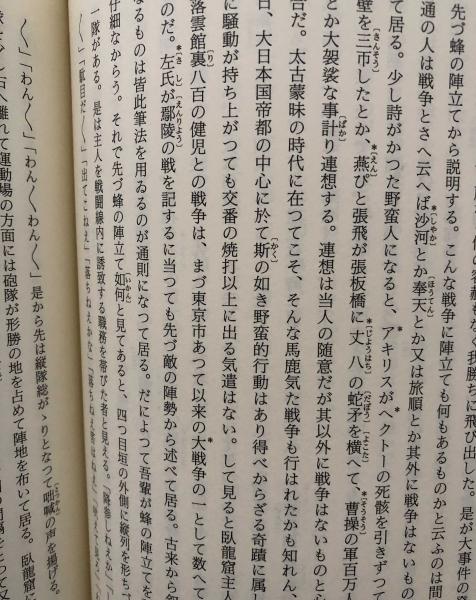 く我勝ちに飛び出した。是が大事件の
先づ蜂の陣立てから説明する。こんな戦争に陣立ても何もあるものかと云ふのは間
通の人は戦争とさへ云へば沙河とか奉天とか又は旅順とか其外に戦争はないもの
て居る。少し詩がかつた野蛮人になると、アキリスがヘクトーの死骸を引きずつて
壁を三匝したとか、燕ぴと張飛が長坂橋に丈八の蛇矛を横へて、曹操の軍百万人
とか大袈裟な事計り連想する。連想は当人の随意だが其以外に戦争はないものと心
合だ。太古蒙昧の時代に在つてこそ、そんな馬鹿気た戦争も行はれたかも知れん、
日、大日本国帝都の中心に於て斯の如き野蛮的行動はあり得べからざる奇蹟に属し
に騒動が持ち上がつても交番の焼打以上に出る気遣はない。して見ると臥龍窟主人
落雲館裏八百の健児との戦争は、まづ東京市あつて以来の大戦争の一として数へて
のだ。左氏が鄢陵の戦を記するに当つても先づ敵の陣勢から述べて居る。古来から叙
なるものは皆此筆法を用ゐるのが通則になつて居る。だによつて吾輩が蜂の陣立てを
仔細なからう。それで先づ蜂の陣立て如何と見てあると、四つ目垣の外側に縦列を形ち
一隊がある。是は主人を戦闘線内に誘致する職務を帯びた者と見える。「降参しねえか」
〱」「駄目だ〱」「出てこねえ」「落ちねえかな」「落ちねえ筈はねえ」「吠えて見ろ」
〱」「わん〱」「わん〱わん〱」是から先は縦隊総がゝりとなつて吶喊の声を揚げる。
右へ離れて運動場の方面には砲隊が形勝の地を占めて陣地を布いて居る。臥龍窟